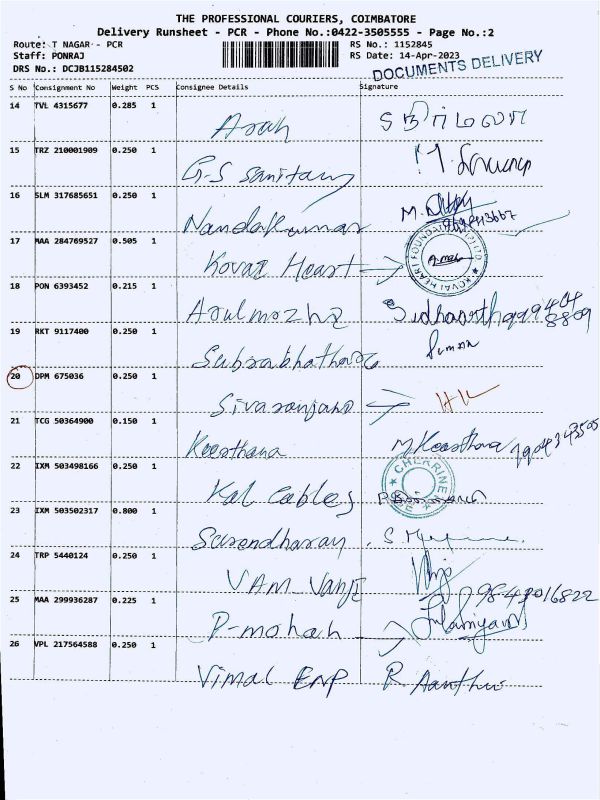 THE PROFESSIONAL COURIERS, COIMBATORE
Delivery Runsheet - PCR - Phone No.:0422-3505555 - Page No.:2
Route: T NAGAR - PCR RS No.: 1152845
Staff: PONRAJ RS Date: 14-Apr-2023
DRS No.: DCJB115284502 DOCUMENTS DELIVERY
S No Consignment No Weight PCS Consignee Details Signature
14 TVL 4315677 0.285 1
Arah
15 TRZ 210001909 0.250 1
G-S sanitary
16 SLM 317685651 0.250 1
Nandakumar M.
17 MAA 284769527 0.505 1
Kovai Heart KOVAI HEART FOUNDATION
18 PON 6393452 0.215 1
Arulmozhi Sidhaarth 99404
8809
19 RKT 9117400 0.250 1
Subrabhatharo Suman
20 DPM 675036 0.250 1
Sivaranjano
21 TCG 50364900 0.150 1
Keerthana M Keerthana
22 IXM 503498166 0.250 1
Kal Cables
23 IXM 503502317 0.800 1
Surendharan S.
24 TRP 5440124 0.250 1
VAM Vanji
98-43016822
25 MAA 299936287 0.225 1
P-mohah
26 VPL 217564588 0.250 1
Vimal ENP R.